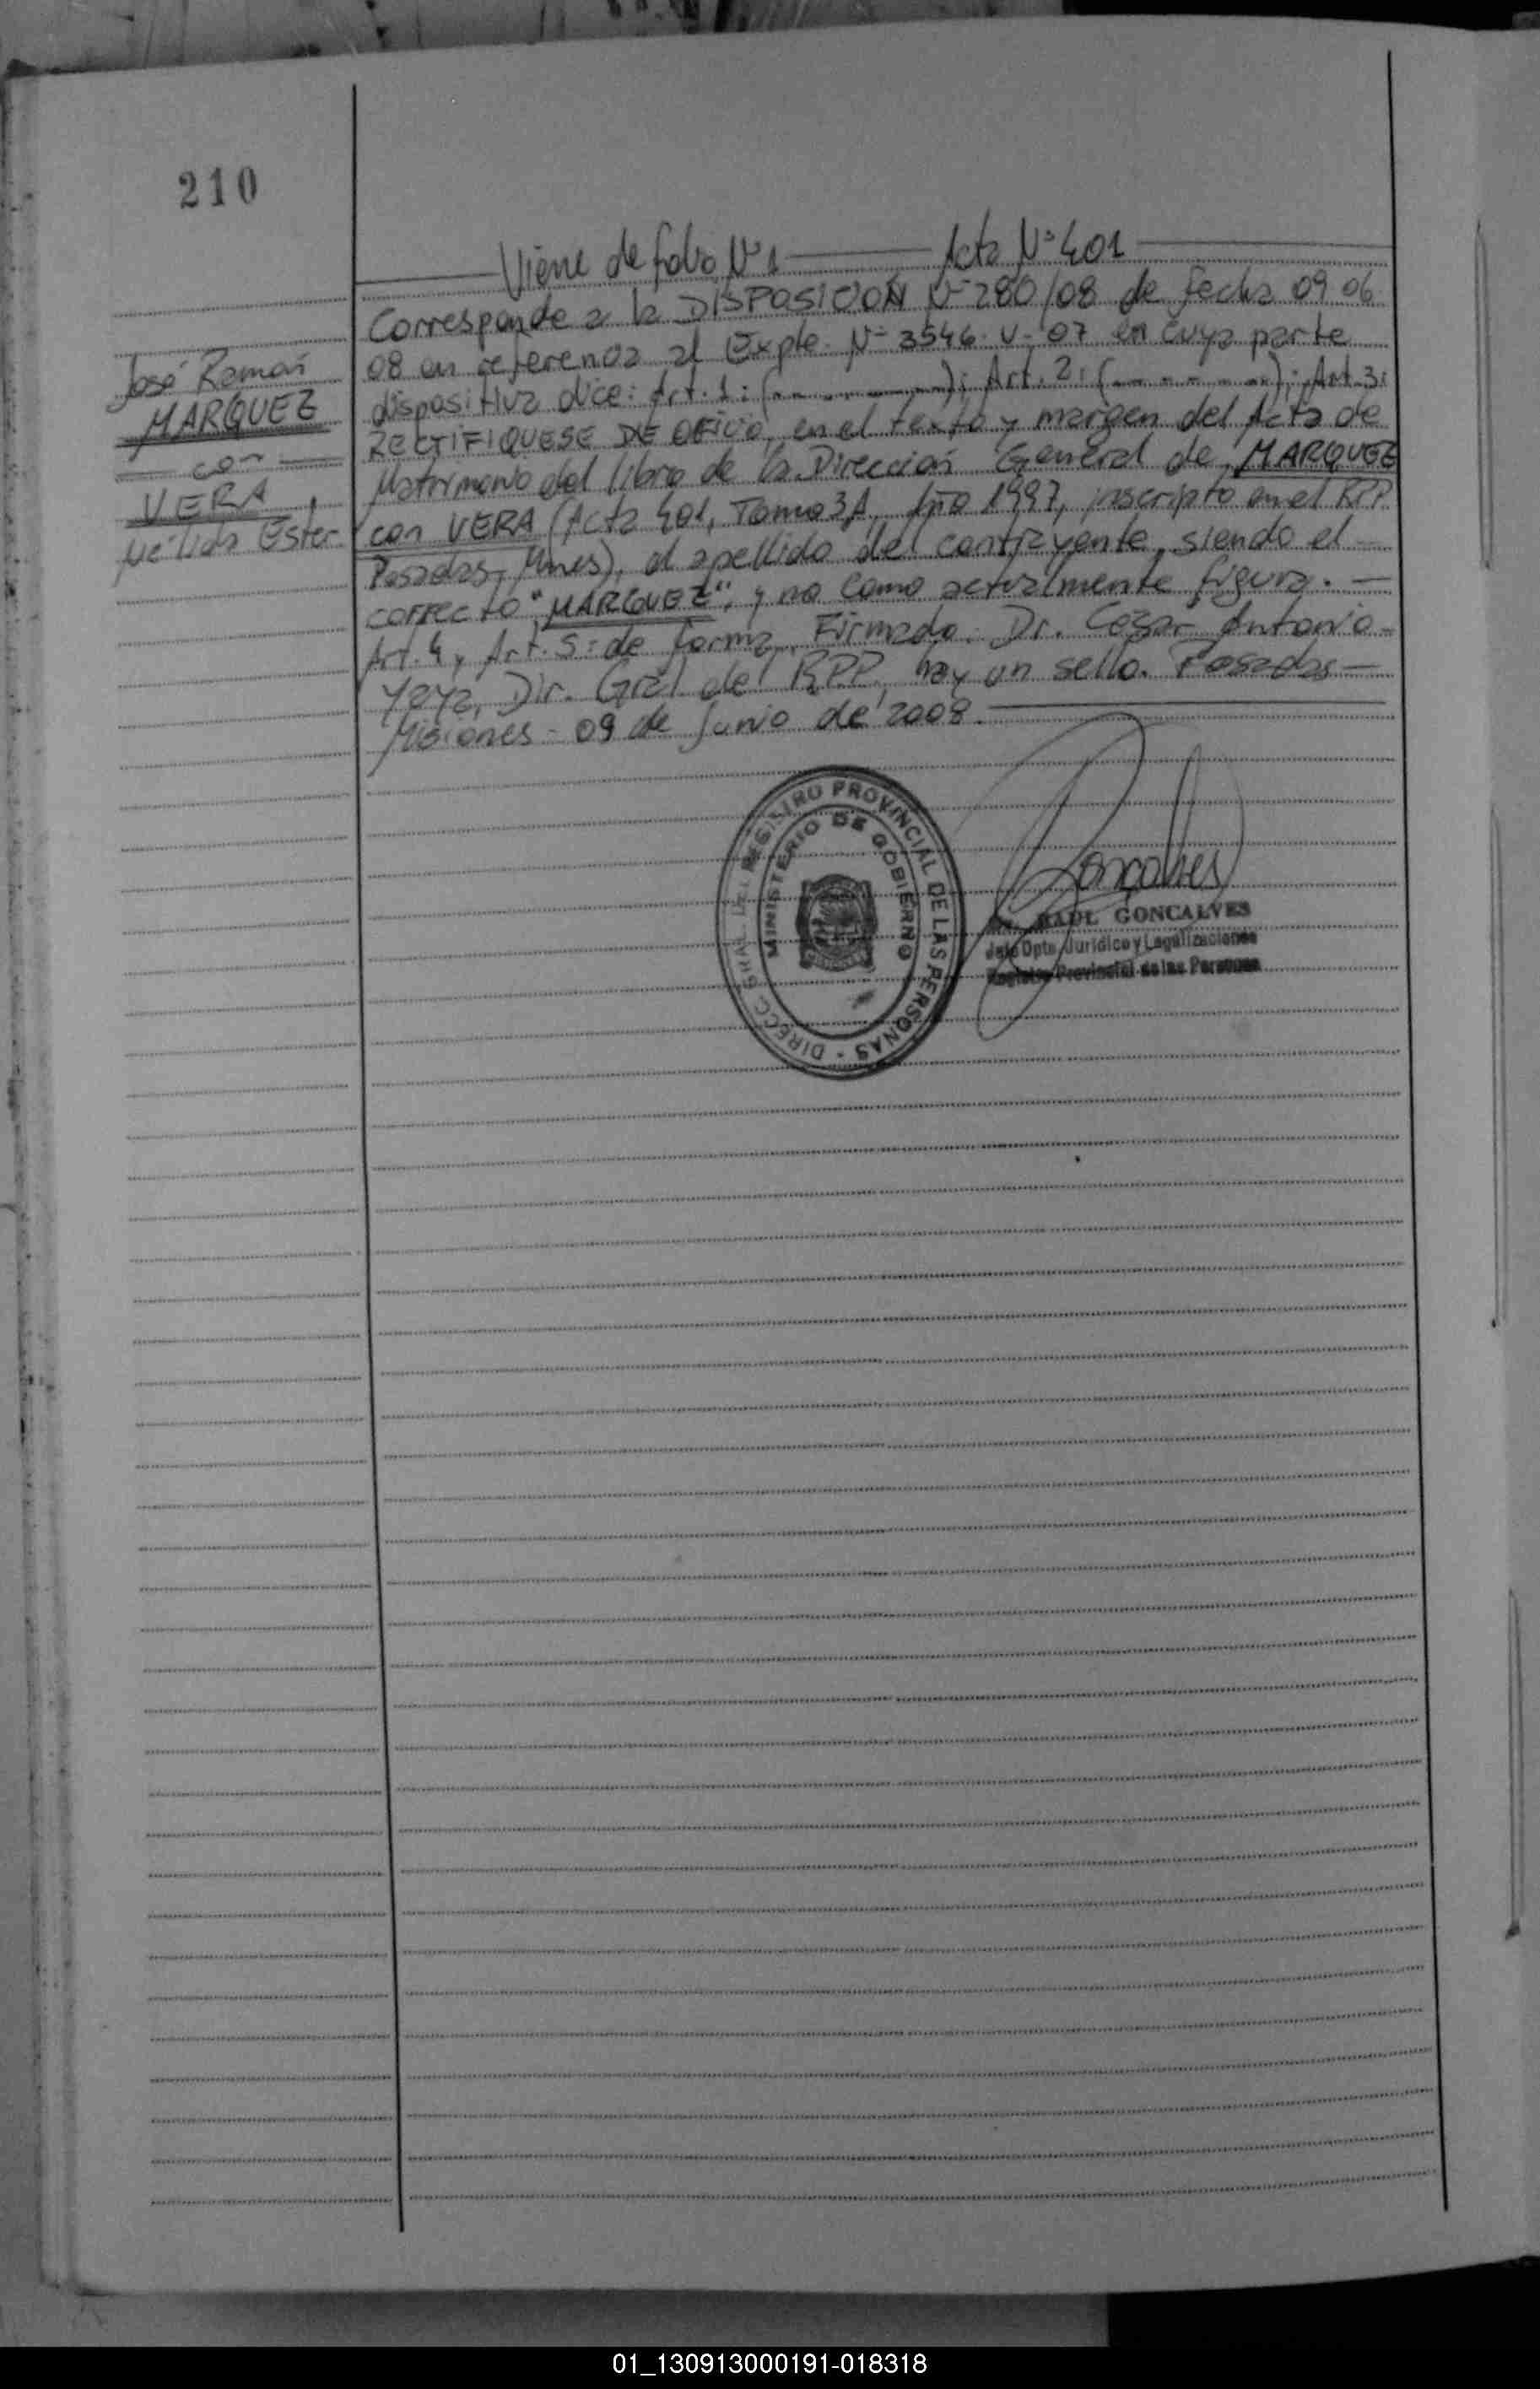 210
Viene de folio N° 1 Acta N° 401
Corresponde a la DISPOSICION N° 280/08 de fecha 09 06
08 en referencia al Expte. N° 3546-V-07 en cuya parte
dispositiva dice: Art. 1: (-------); Art. 2: (-------); Art. 3:
RECTIFIQUESE DE OFICIO, en el texto y margen del Acta de
Matrimonio del libro de la Dirección General de MARQUEZ
con VERA (Acta 401, Tomo 3A, Año 1997, inscripto en el RPP.
Posadas, Mnes), el apellido del contrayente, siendo el
correcto "MARQUEZ", y no como actualmente figura.
Art. 4, Art. 5: de forma. Firmado. Dr. Cesar Antonio
Yaya, Dir. Gral del RPP, hay un sello. Posadas
Misiones - 09 de Junio de 2008.
José Ramón
MARQUEZ
con
VERA,
Nélida Ester
DIRECC. GRAL. DEL REGISTRO PROVINCIAL DE LAS PERSONAS -
MINISTERIO DE GOBIERNO
Goncalves
RAUL GONCALVES
Jefe Dpto. Jurídico y Legalizaciones
Registro Provincial de las Personas
01_130913000191-018318